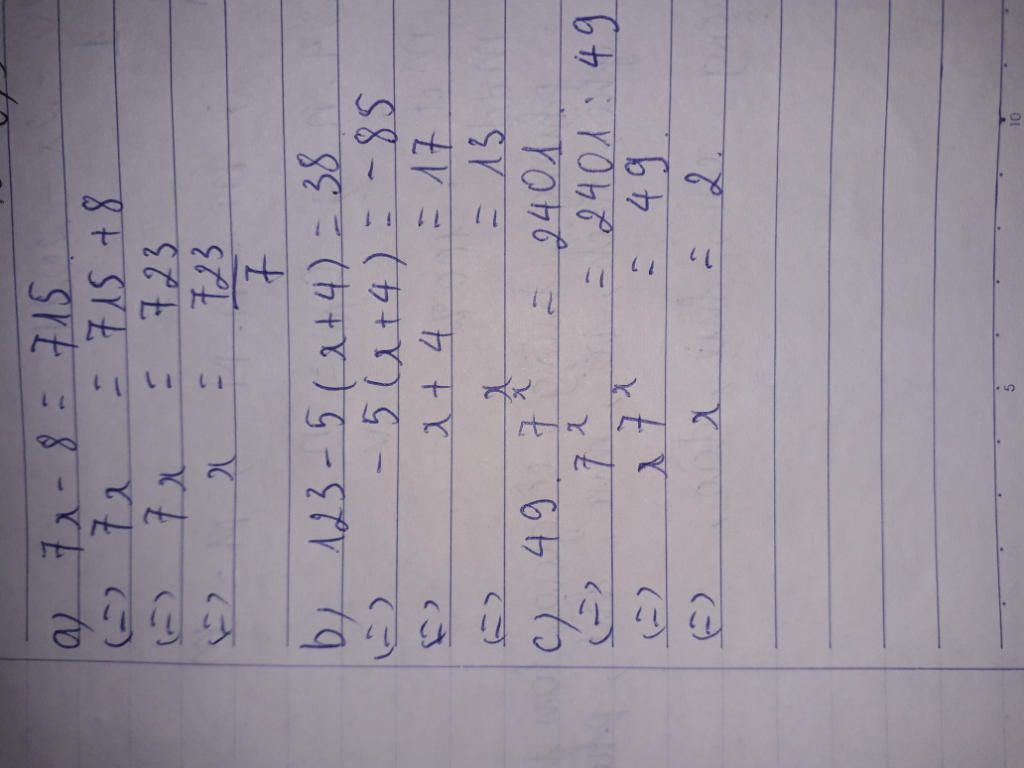 a) 7x - 8 = 715
(=) 7x = 715 + 8
(=) 7x = 723
(=) x = 723/7
b) 123 - 5(x+4) = 38
(=) - 5(x+4) = - 85
(=) x + 4 = 17
(=) x = 13
c) 49 . 7^x = 2401
(=) 7^x = 2401 : 49
(=) x 7^x = 49
(=) x = 2.
5
10